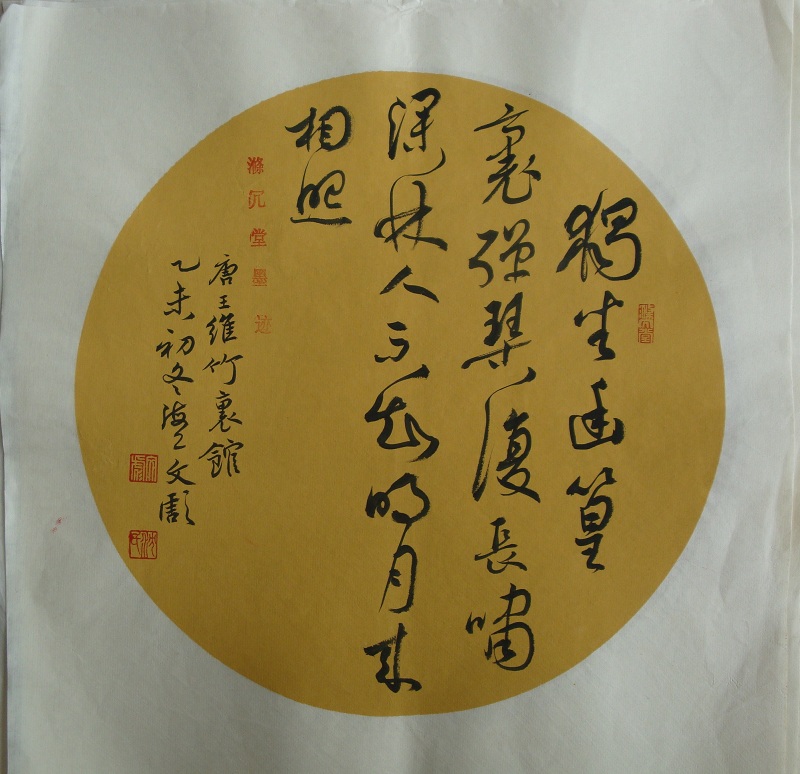 獨坐幽篁
裏彈琴復長嘯
深林人不知明月来
相照
堂墨迹
唐王維竹裏館
乙未初冬海上文